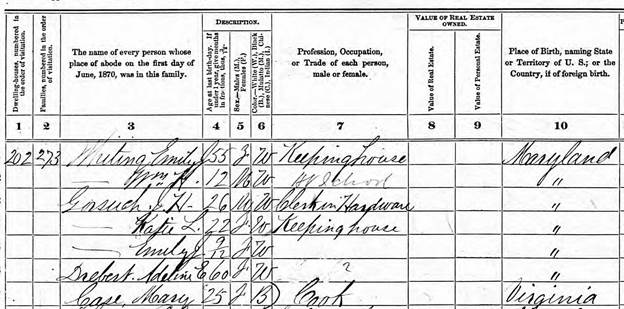 Dwelling-houses, numbered in the order of visitation.
Families, numbered in the order of visitation.
The name of every person whose place of abode on the first day of June, 1870, was in this family.
DESCRIPTION.
Age at last birth-day. If under 1 year, give months in fractions, thus, 3/12
Sex.—Males (M.), Females (F.)
Color.—White (W.), Black (B.), Mulatto (M.), Chinese (C.), Indian (I.)
Profession, Occupation, or Trade of each person, male or female.
VALUE OF REAL ESTATE OWNED.
Value of Real Estate.
Value of Personal Estate.
Place of Birth, naming State or Territory of U. S.; or the Country, if of foreign birth.
1 2 3 4 5 6 7 8 9 10
202 273 Whiting Emily J 55 F W Keeping house Maryland
— Wm H. 12 M W At School "
Gorsuch J H- 26 M W Clerk in Hardware "
— Katie L. 22 F W Keeping house "
— Emily J 9/12 F W "
Adeline E 60 F W ? "
Case, Mary 25 F B Cook Virginia